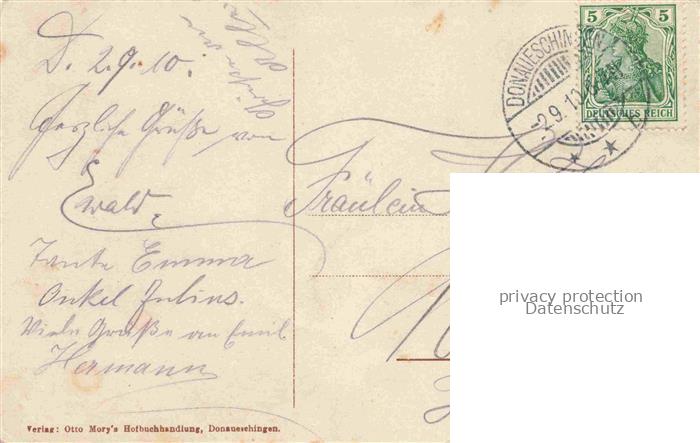 D. 2.9.10.
Herzliche Grüße von
Ewald.
Tante Emma
Onkel Julius.
Viele Grüße an Emil
Hermann
Fräulein
DONAUESCHINGEN
2.9.10
5 5
DEUTSCHES REICH
privacy protection
Datenschutz
Verlag: Otto Mory's Hofbuchhandlung, Donaueschingen.